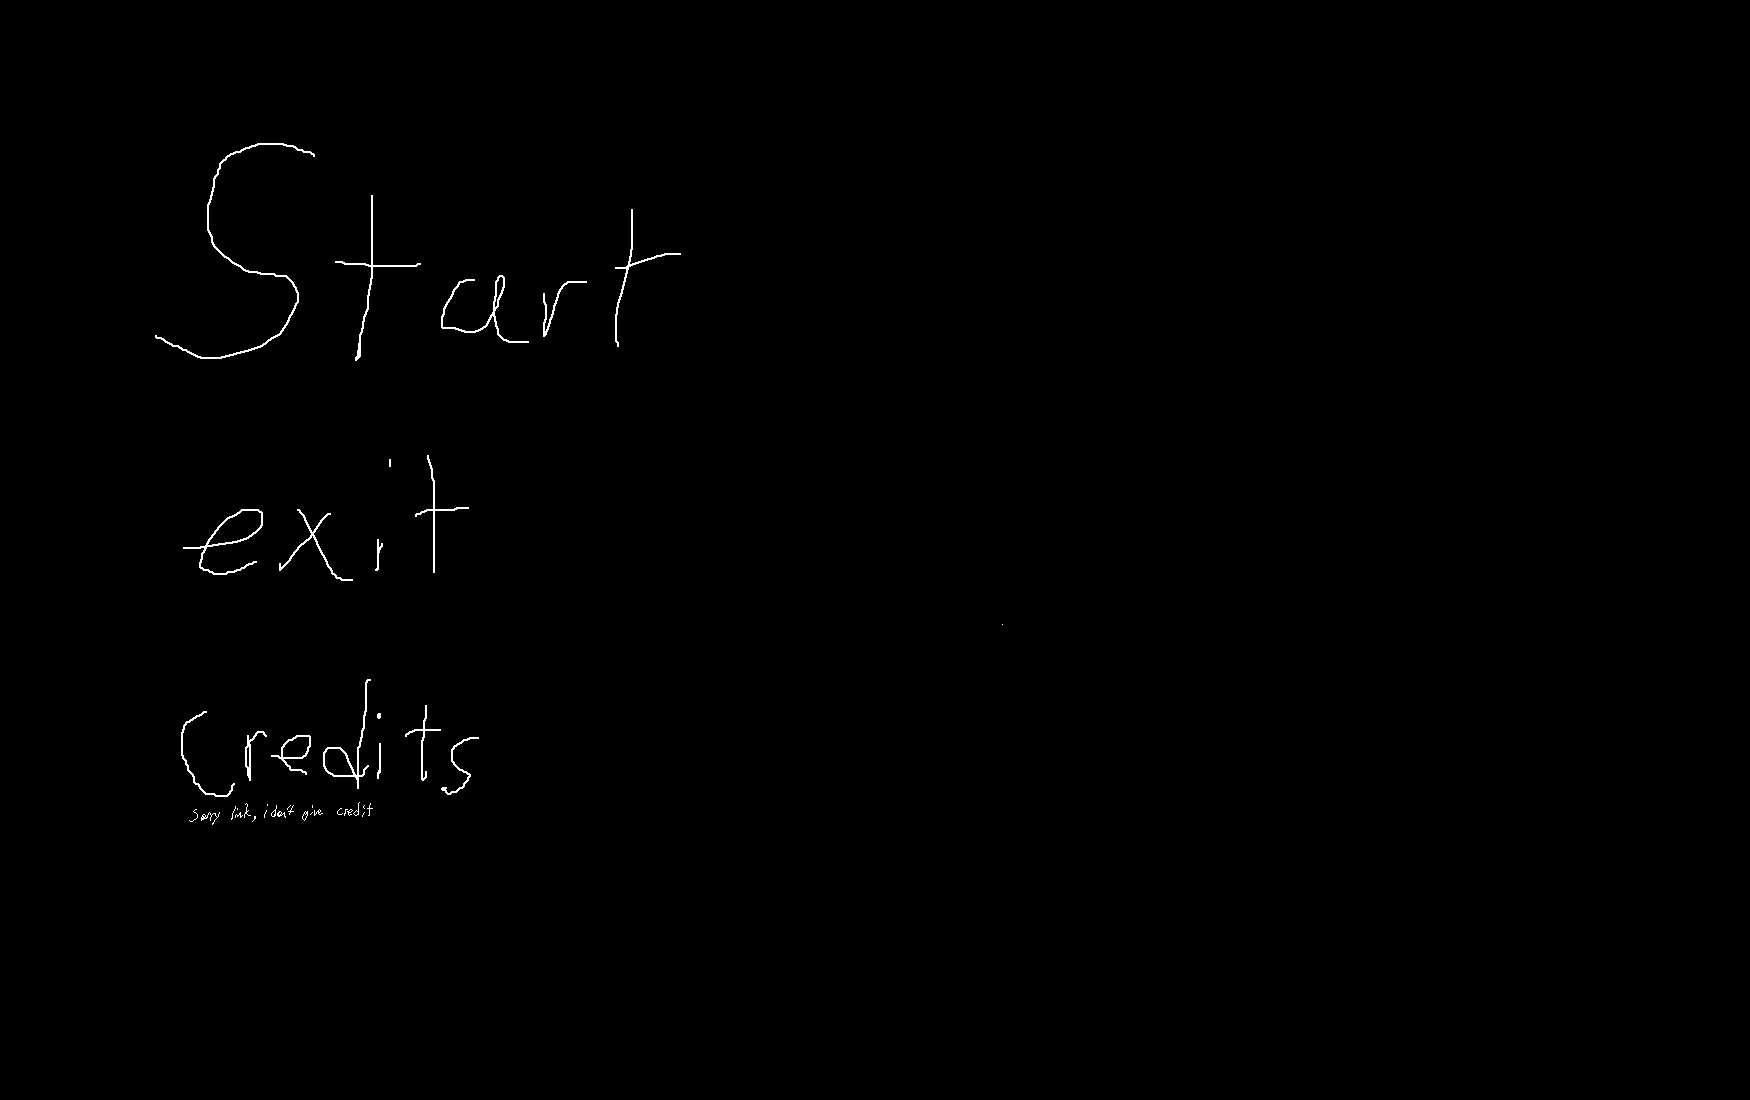 Start
exit
Credits
Sorry link, i don't give credit